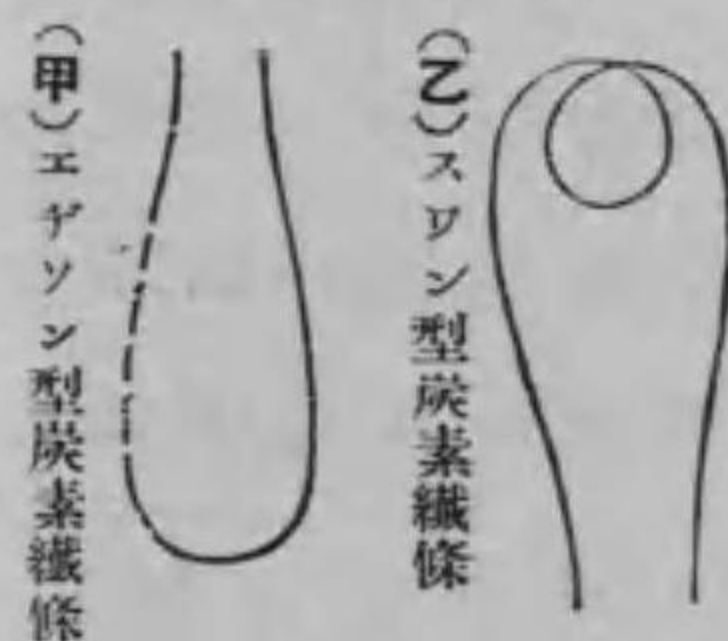 (乙)スワン型炭素纖條
(甲)エヂソン型炭素纖條